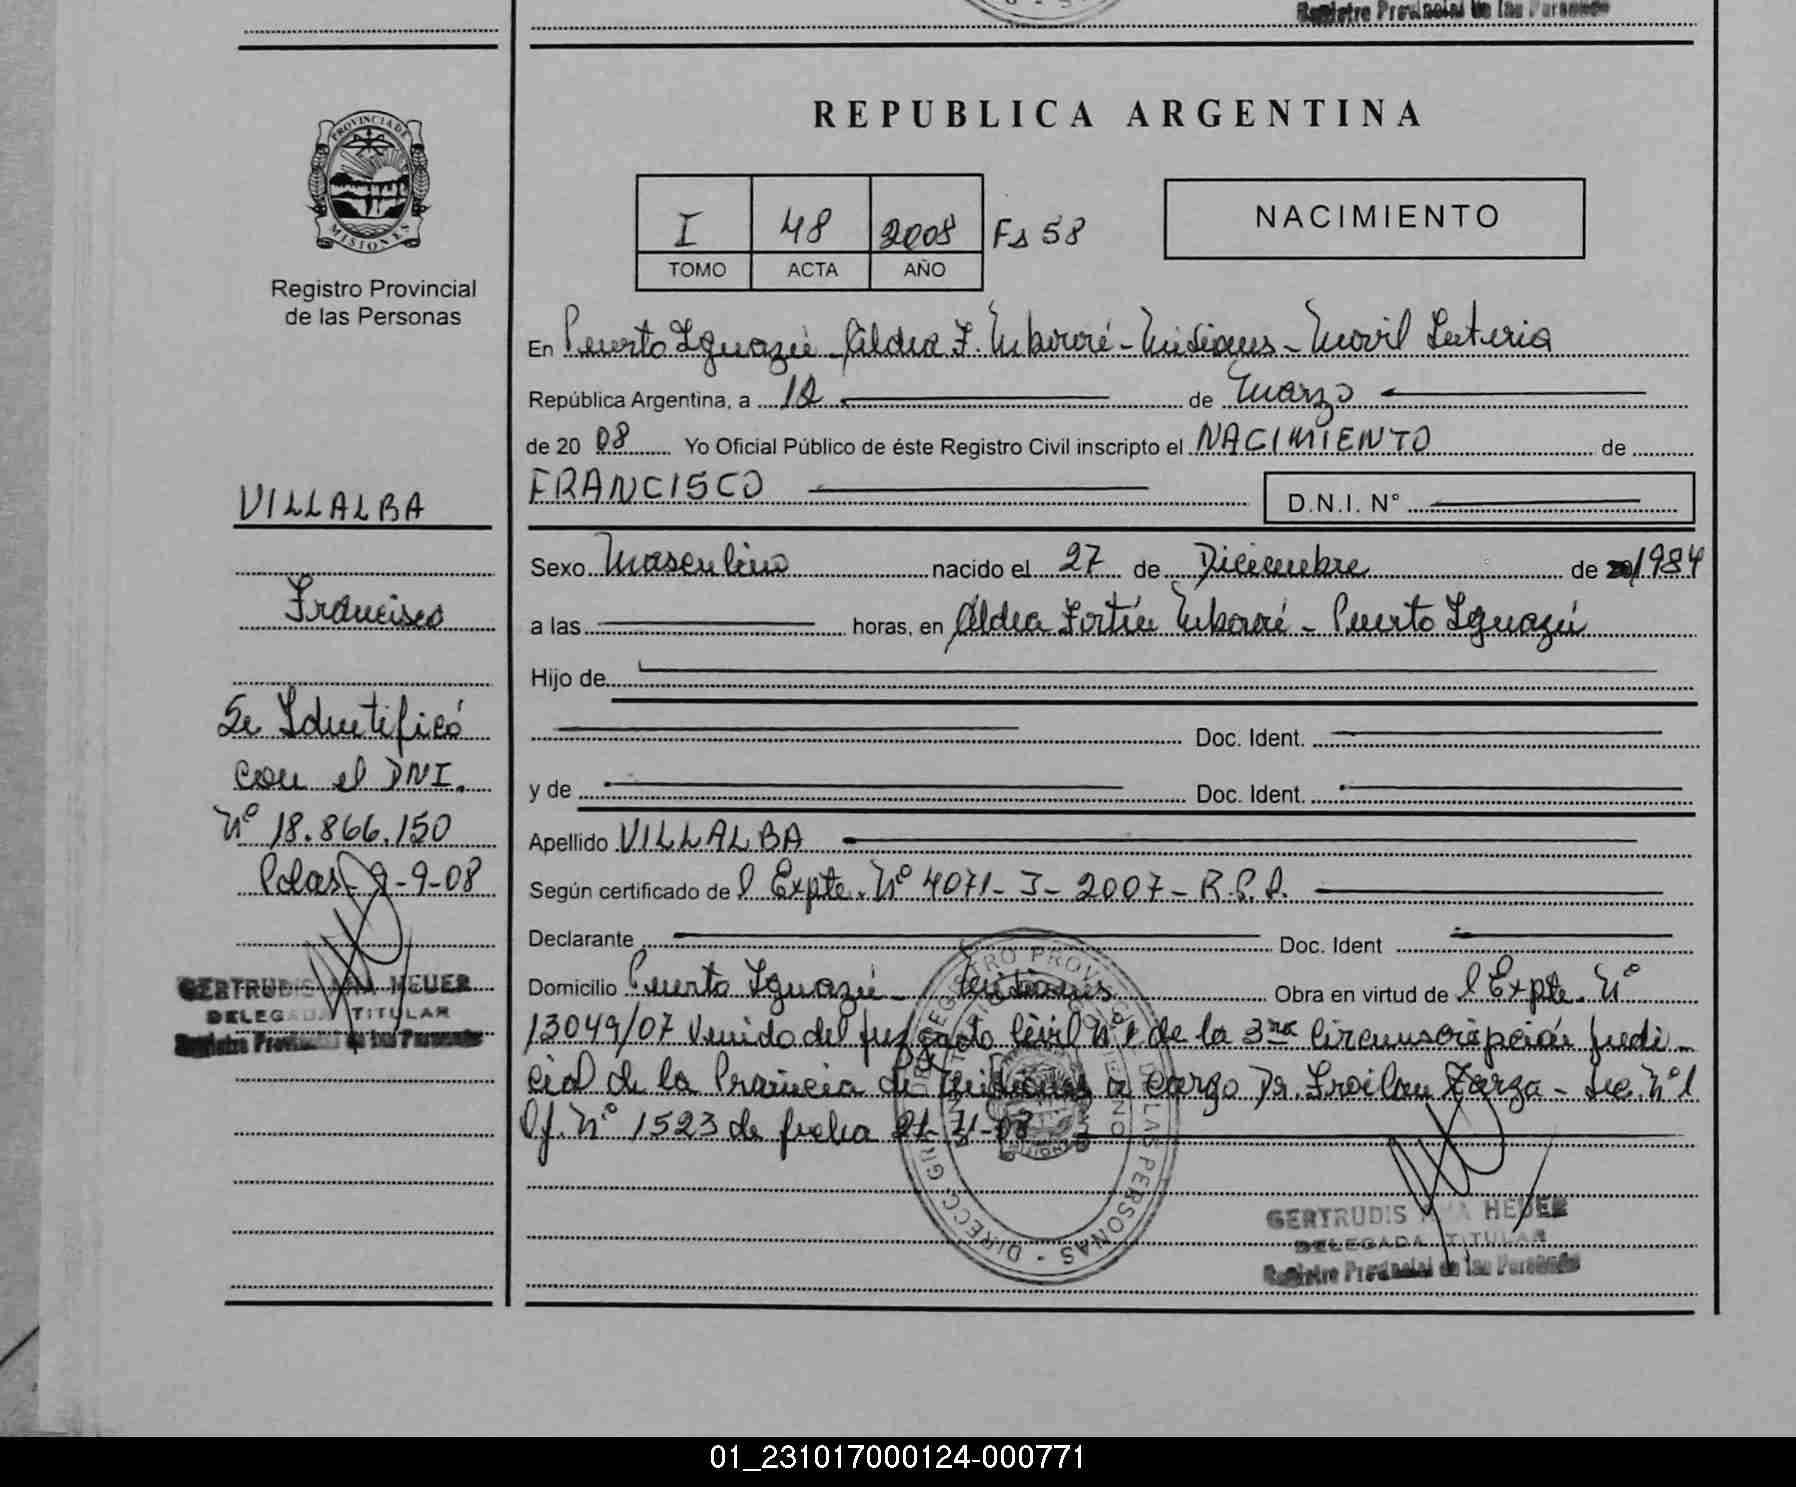 Registro Provincial de las Personas
REPUBLICA ARGENTINA
PROVINCIA DE
MISIONES
Registro Provincial
de las Personas
I 48 2008 Fs 58
TOMO ACTA AÑO
NACIMIENTO
En Puerto Iguazú - Aldea F. Mbororé - Misiones - Movil
República Argentina, a 12 de Marzo
de 20 08 Yo Oficial Público de éste Registro Civil inscripto el NACIMIENTO de
FRANCISCO D.N.I. N°
VILLALBA
Francisco
Se Identificó
con el DNI.
N° 18.866.150
Pdas. 9-9-08
GERTRUDIS ANA HEUER
DELEGADA TITULAR
Registro Provincial de las Personas
Sexo Masculino nacido el 27 de Diciembre de 1984
a las horas, en Aldea Fortín Mbororé - Puerto Iguazú
Hijo de
Doc. Ident.
y de Doc. Ident.
Apellido VILLALBA
Según certificado de Expte. N° 4071-J-2007-R.P.P.
Declarante Doc. Ident
Domicilio Puerto Iguazú - Misiones Obra en virtud de Expte. N°
13049/07 Venido del Juzgado Civil N° 1 de la 3ra Circunscripción Judi-
cial de la Provincia de Misiones a cargo Dr. Froilan Zarza - Sec. N° 1
Of. N° 1523 de fecha
GERTRUDIS ANA HEUER
DELEGADA TITULAR
Registro Provincial de las Personas
01_231017000124-000771